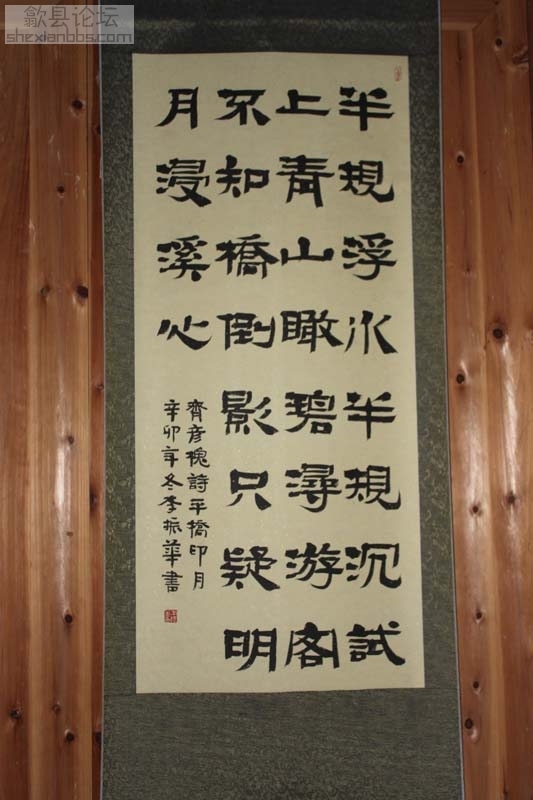 歙县论坛
shexianbbs.com
半規浮水半規沉試
上青山瞰碧潯游客
不知橋倒影只疑明
月浸溪心
齊彦槐詩平橋印月
辛卯年冬李振華書